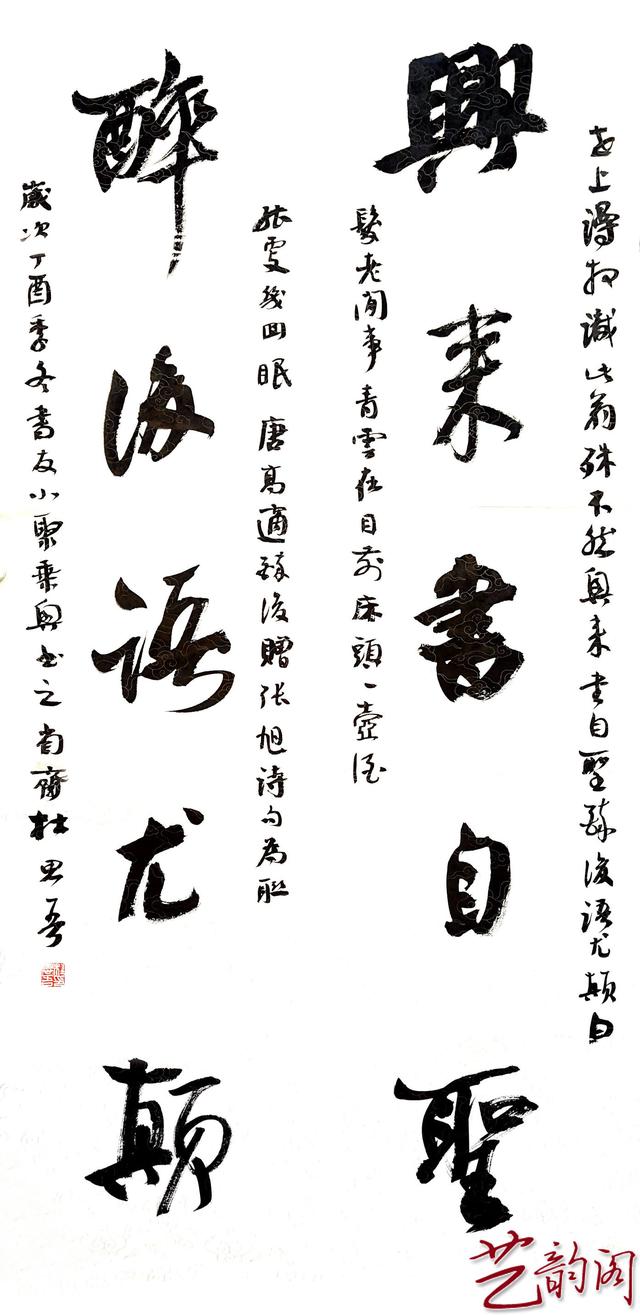 世上謾相識此翁殊不然興来書自聖醉後語尤顛白
興来書自聖
髮老閒事青雲在目前床頭一壺酒
能更幾回眠 唐高適醉後贈張旭詩句為聯
醉後語尤顛
歲次丁酉季冬書友小聚乘興書之 齋杜思吾
艺韵阁